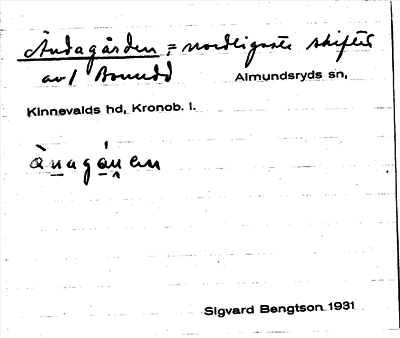 Ändagården = nordligaste skiftet
av / Almundsryds sn,
Kinnevalds hd, Kronob. l.
ànagánen
Sigvard Bengtson 1931